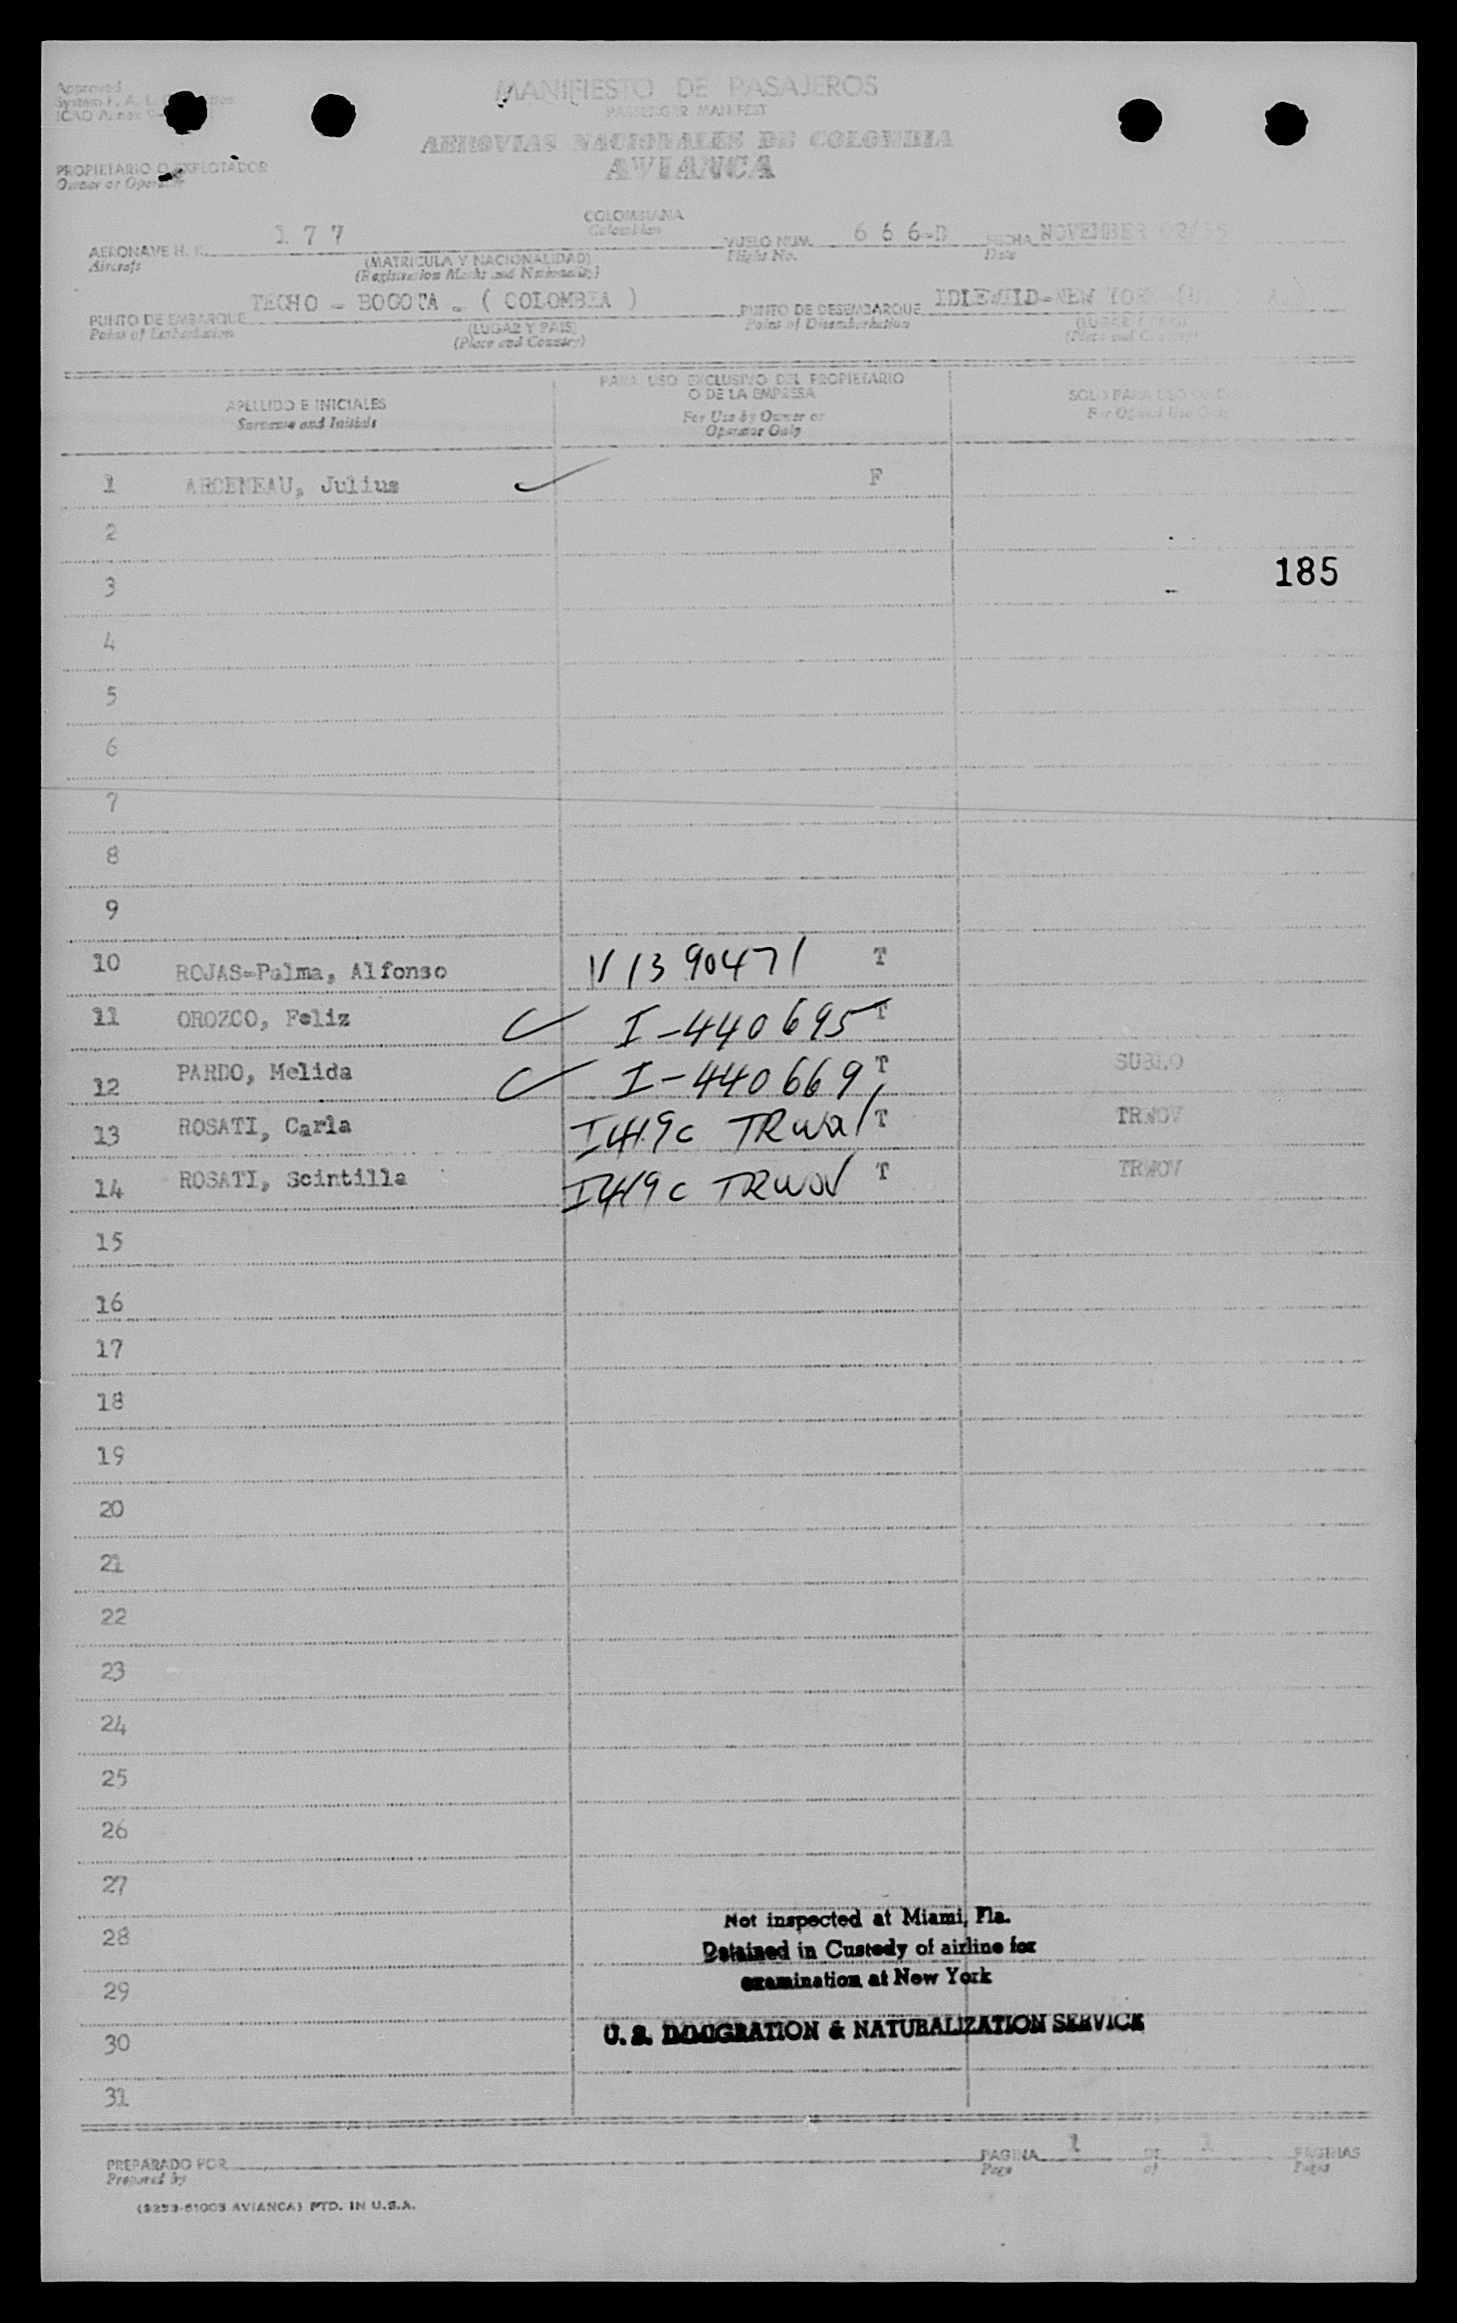 Approved
System F. A. L.
ICAO Annex 9
MANIFIESTO DE PASAJEROS
PASSENGER MANIFEST
AEROVIAS NACIONALES DE COLOMBIA
AVIANCA
PROPIETARIO O EXPLOTADOR
Owner or Operator
COLOMBIANA
Colombian
AERONAVE H. K. 177 VUELO NUM. 666-D FECHA NOVEMBER 02/55
Aircraft (MATRICULA Y NACIONALIDAD) Flight No. Date
(Registration Marks and Nationality)
PUNTO DE EMBARQUE TECHO - BOGOTA - ( COLOMBIA ) PUNTO DE DESEMBARQUE IDLEWILD-NEW YORK
Point of Embarkation (LUGAR Y PAIS) Point of Disembarkation (LUGAR Y PAIS)
(Place and Country) (Place and Country)
APELLIDO E INICIALES PARA USO EXCLUSIVO DEL PROPIETARIO SOLO PARA USO
Surname and Initials O DE LA EMPRESA For Official Use Only
For Use by Owner or
Operator Only
1 ARCENEAU, Julius ✓ F
2
185
3
4
5
6
7
8
9
10 ROJAS-Palma, Alfonso V1390471 T
11 OROZCO, Feliz ✓ I-440695 T
12 PARDO, Melida ✓ I-440669 T SUBLO
13 ROSATI, Carla I419c TRWOV T TRWOV
14 ROSATI, Scintilla I419c TRWOV T TRWOV
15
16
17
18
19
20
21
22
23
24
25
26
27
Not inspected at Miami, Fla.
28
Detained in Custody of airline for
29 examination at New York
U. S. IMMIGRATION & NATURALIZATION SERVICE
30
31
PREPARADO POR PAGINA 1 DE 1 PAGINAS
Prepared by Page of Pages
(9253-61003 AVIANCA) PTD. IN U.S.A.